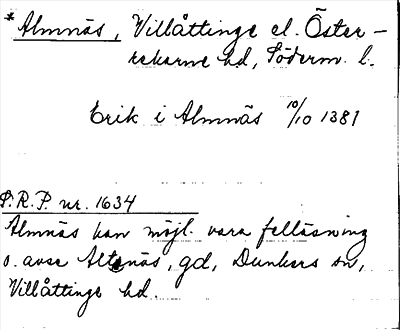 *Almnäs, Villåttinge el. Öster-
rekarne hd, Söderm. l.
Erik i Almnäs 10/10 1381
S.R.P. nr. 1634
Almnäs kan möjl. vara felläsning
o. avse Altenäs, gd, Dunkers sn,
Villåttinge hd.